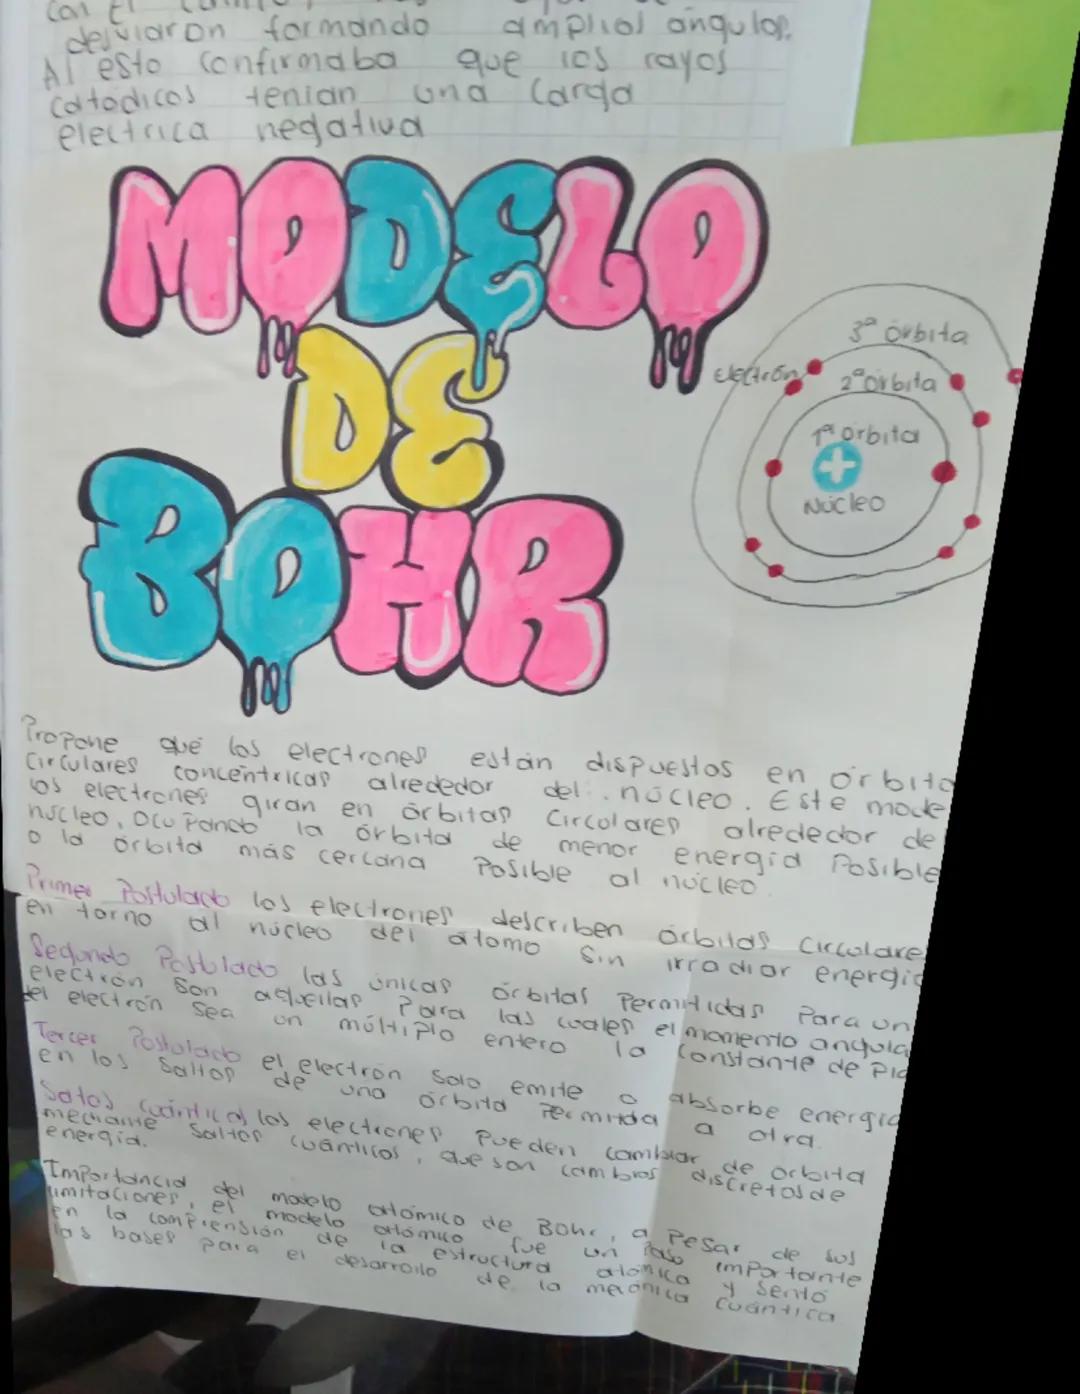 desviaron formando amplios angulos.
Al esto confirmaba que los rayos
catodicos tenian una carga
electrica negativa
MODELO
DE
BOHR
3ª órbita
electrón
2ª órbita
1ª órbita
+
Núcleo
Propone que los electrones están dispuestos en órbita
circulares concéntricas alrededor del núcleo. Este mode
los electrones giran en órbitas circulares alrededor de
núcleo, ocupando la órbita de menor energia posible
o la órbita más cercana posible al núcleo.
Primer Postulado los electrones describen órbitas circulare
en torno al núcleo del átomo sin irradiar energia
Segundo Postulado las únicas órbitas permitidas para un
electrón son aquellas para las cuales el momento angula
del electrón sea un múltiplo entero la constante de Pla
Tercer Postulado el electrón solo emite o absorbe energia
en los saltos de una órbita permitida a otra.
Saltos cuánticos los electrones pueden cambiar de órbita
mediante saltos cuánticos, que son cambios discretos de
energía.
Importancia del modelo atómico de Bohr, a pesar de sus
limitaciones, el modelo atómico fue un paso importante
en la comprensión de la estructura atómica y sentó
las bases para el desarrollo de la mecánica cuántica